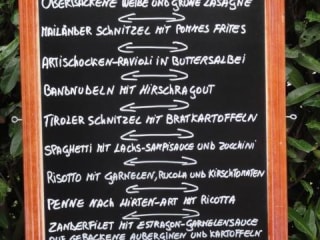 ÜBERBACKENE WEIßE UND GRÜNE LASAGNE
MAILÄNDER SCHNITZEL MIT POMMES FRITES
ARTISCHOCKEN-RAVIOLI IN BUTTERSALBEI
BANDNUDELN MIT HIRSCHRAGOUT
TIROLER SCHNITZEL MIT BRATKARTOFFELN
SPAGHETTI MIT LACHS-SAMPISAUCE UND ZUCCHINI
RISOTTO MIT GARNELEN, RUCOLA UND KIRSCHTOMATEN
PENNE NACH HIRTEN-ART MIT RICOTTA
ZANDERFILET MIT ESTRAGON-GARNELENSAUCE
AUF GEBACKENE AUBERGINEN UND KARTOFFELN